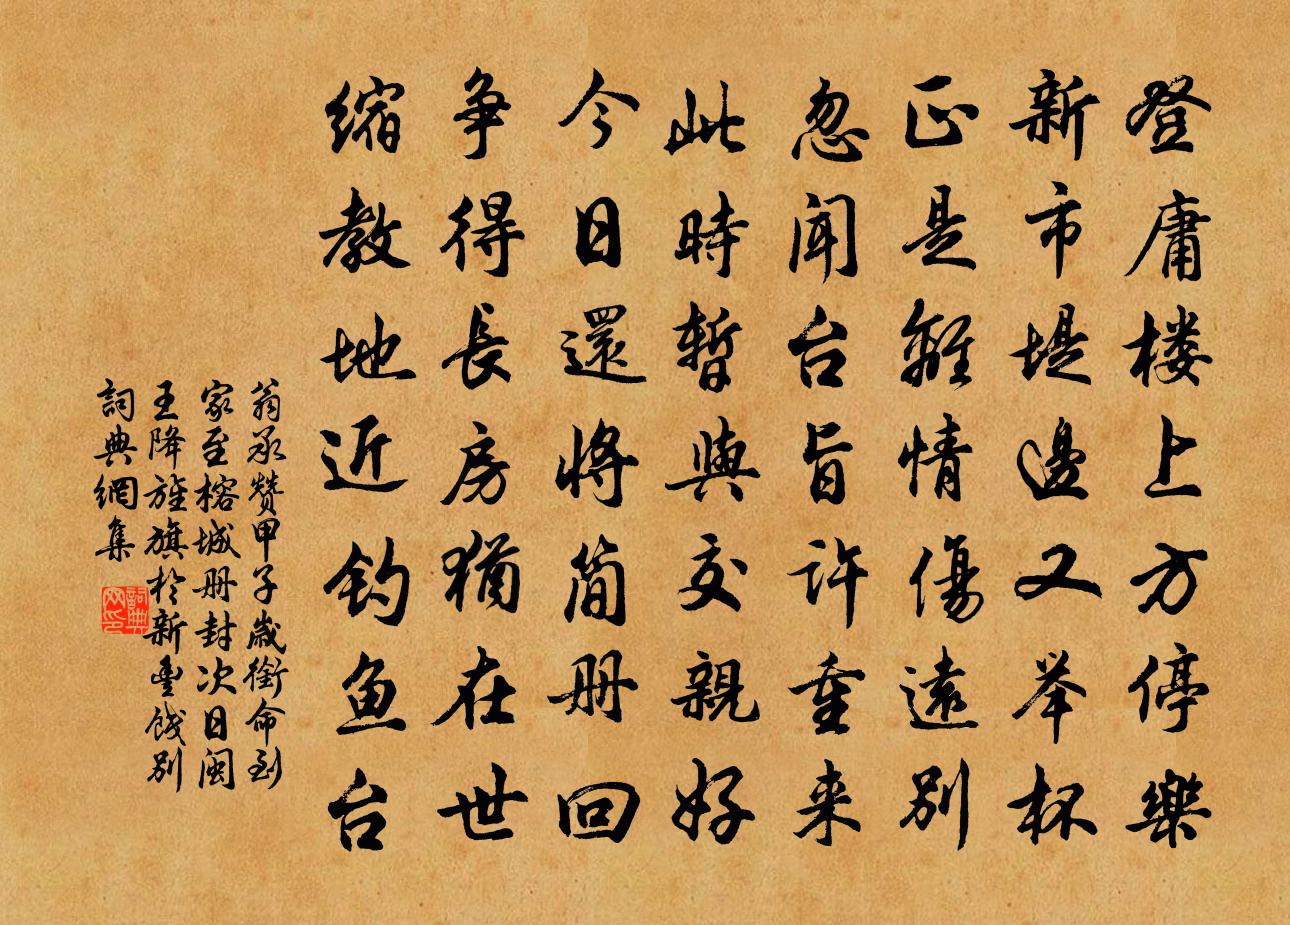 登庸楼上方停樂
新市堤邊又举杯
正是離情傷遠别
忽闻台旨许重来
此時暫與交親好
今日還将简册回
争得長房猶在世
缩教地近钓鱼台
翁承赞甲子歲銜命到
家至榕城册封次日闽
王降旌旗於新豊餞别
詞典網集
詞典網印